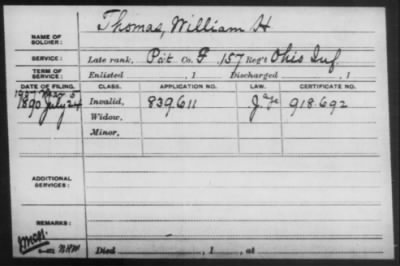 NAME OF SOLDIER: Thomas, William H
SERVICE: Late rank, Pvt. Co. F, 157 Reg't Ohio Inf.
TERM OF SERVICE: Enlisted , 1 Discharged , 1
DATE OF FILING. CLASS. APPLICATION NO. LAW. CERTIFICATE NO.
1890 July 24 Invalid, 839.611 918.692
Widow,
Minor,
ADDITIONAL SERVICES:
REMARKS:
Died , 1 , at